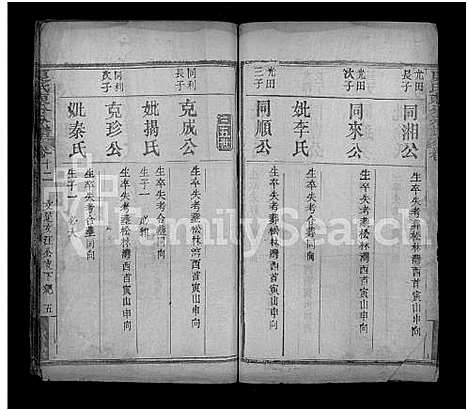 光田長子
同湘公
生卒失考葬松林灣西首寅山申向
光田次子
同來公
生卒失考葬松林灣西首寅山申向
妣李氏
生卒失考合葬同向
光田三子
同順公
生卒失考葬松林灣西首寅山申向
同利長子
克成公
生卒失考葬松林灣西首寅山申向
妣揚氏
生卒失考合葬同向
生子一
同利次子
克珍公
生卒失考葬松林灣西首寅山申向
妣秦氏
生卒失考合葬同向
生子
卷十二
五
FamilySearch